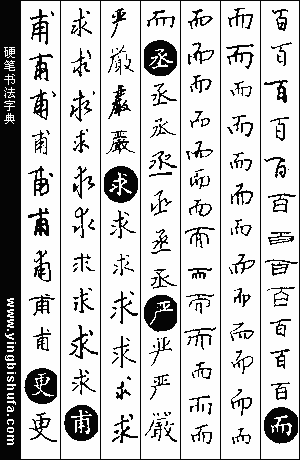 百百百百百百百百百百百百而
而而而而而而而而而而而而而而
而而而而而而而而而而而而而而
而丞丞丞丞丞丞丞严严严嚴
严嚴嚴嚴求求求求求求求
求求求求求求求求求求甫
甫甫甫甫甫甫甫甫甫更更
硬笔书法字典 www.yingbishufa.com